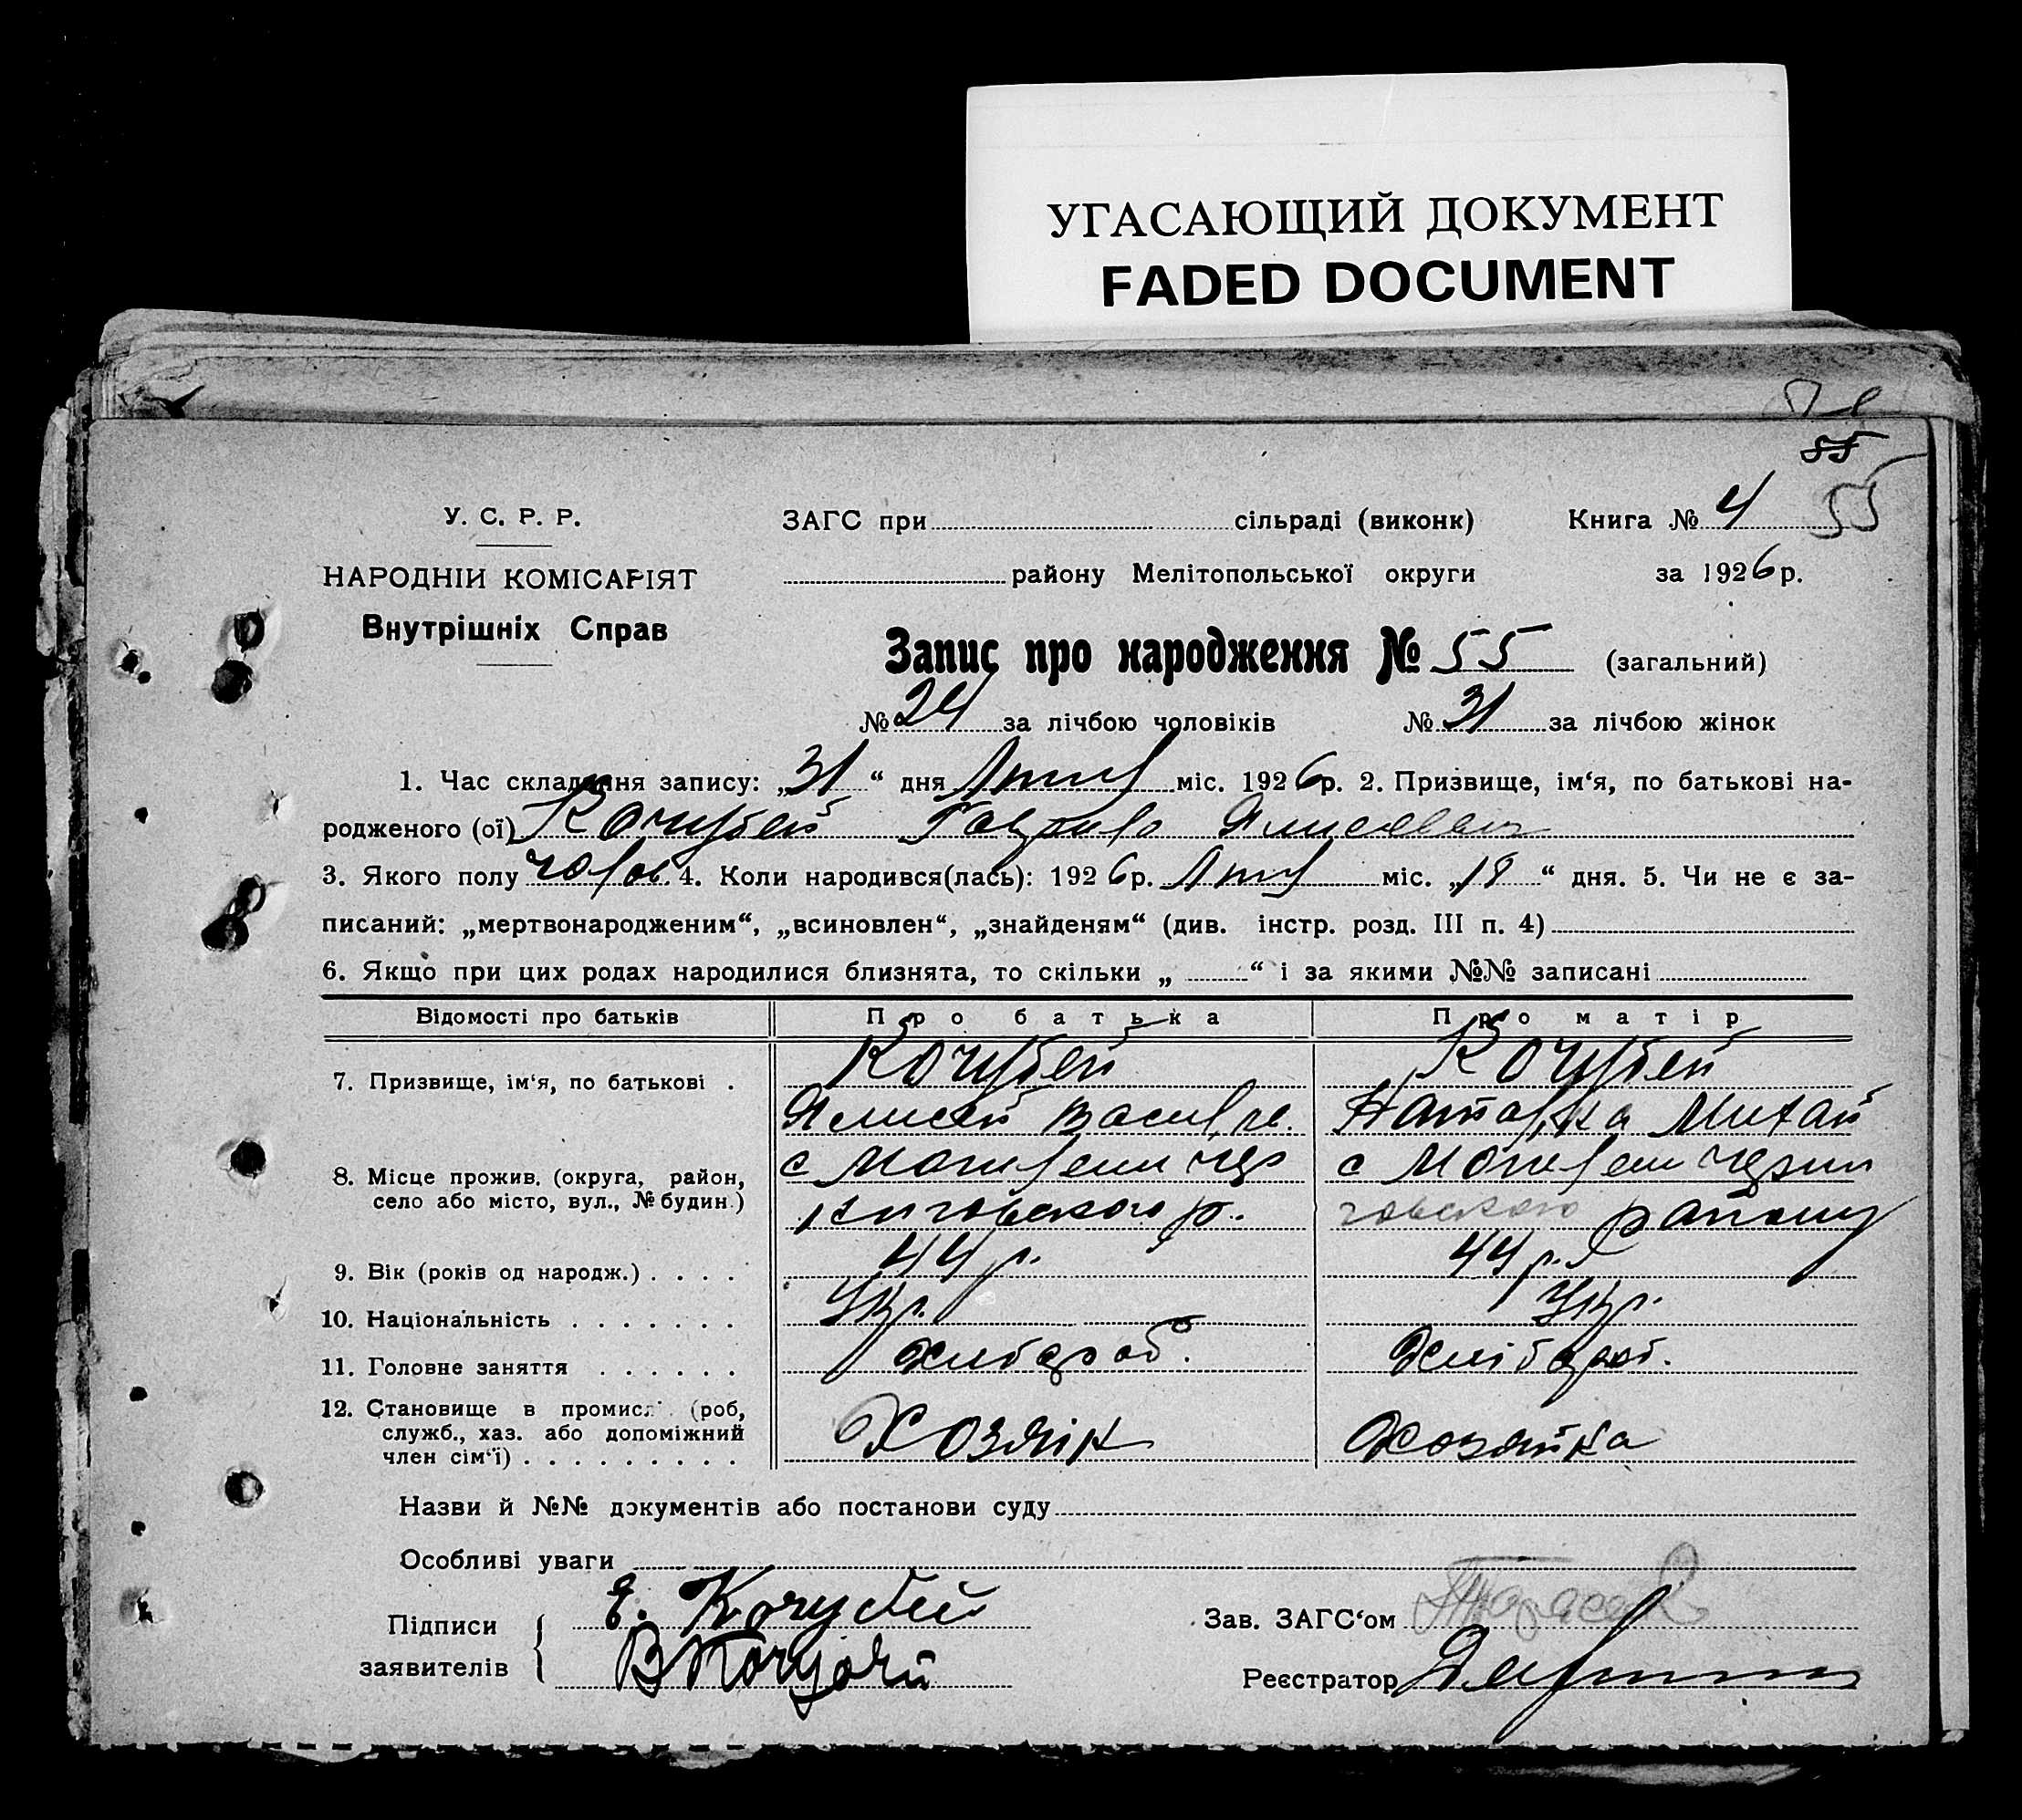 УГАСАЮЩИЙ ДОКУМЕНТ
FADED DOCUMENT
55
55
У. С. Р. Р.
ЗАГС при сільраді (виконк) Книга № 4
НАРОДНІЙ КОМІСАРІЯТ
району Мелітопольської округи за 1926 р.
Внутрішніх Справ
Запис про народження № 55 (загальний)
№ 24 за лічбою чоловіків № 31 за лічбою жінок
1. Час складання запису: „31“ дня міс. 1926 р. 2. Призвище, ім‘я, по батькові на-
родженого (ої) Кочубей Гаврило
3. Якого полу чолов. 4. Коли народився(лась): 1926 р. міс. „18“ дня. 5. Чи не є за-
писаний: „мертвонародженим“, „всиновлен“, „знайденям“ (див. інстр. розд. III п. 4)
6. Якщо при цих родах народилися близнята, то скільки „ “ і за якими №№ записані
Відомості про батьків Про батька Про матір
7. Призвище, ім‘я, по батькові . Кочубей Кочубей
Василь Наталка Михай
8. Місце прожив. (округа, район, село або місто, вул., № будин.) с с
р. говського району
9. Вік (років од народж.) . . . . 44 р. 44 р.
10. Національність . . . . . . . Укр. Укр.
11. Головне заняття . . . . . . Хлібороб. Хлібороб.
12. Становище в промисл. (роб, служб., хаз. або допоміжний член сім‘ї) . . . . . . . . . Хозяїн Хозяйка
Назви й №№ документів або постанови суду
Особливі уваги
Підписи заявителів { Є. Кочубей Зав. ЗАГС‘ом
В Кочубей Реєстратор